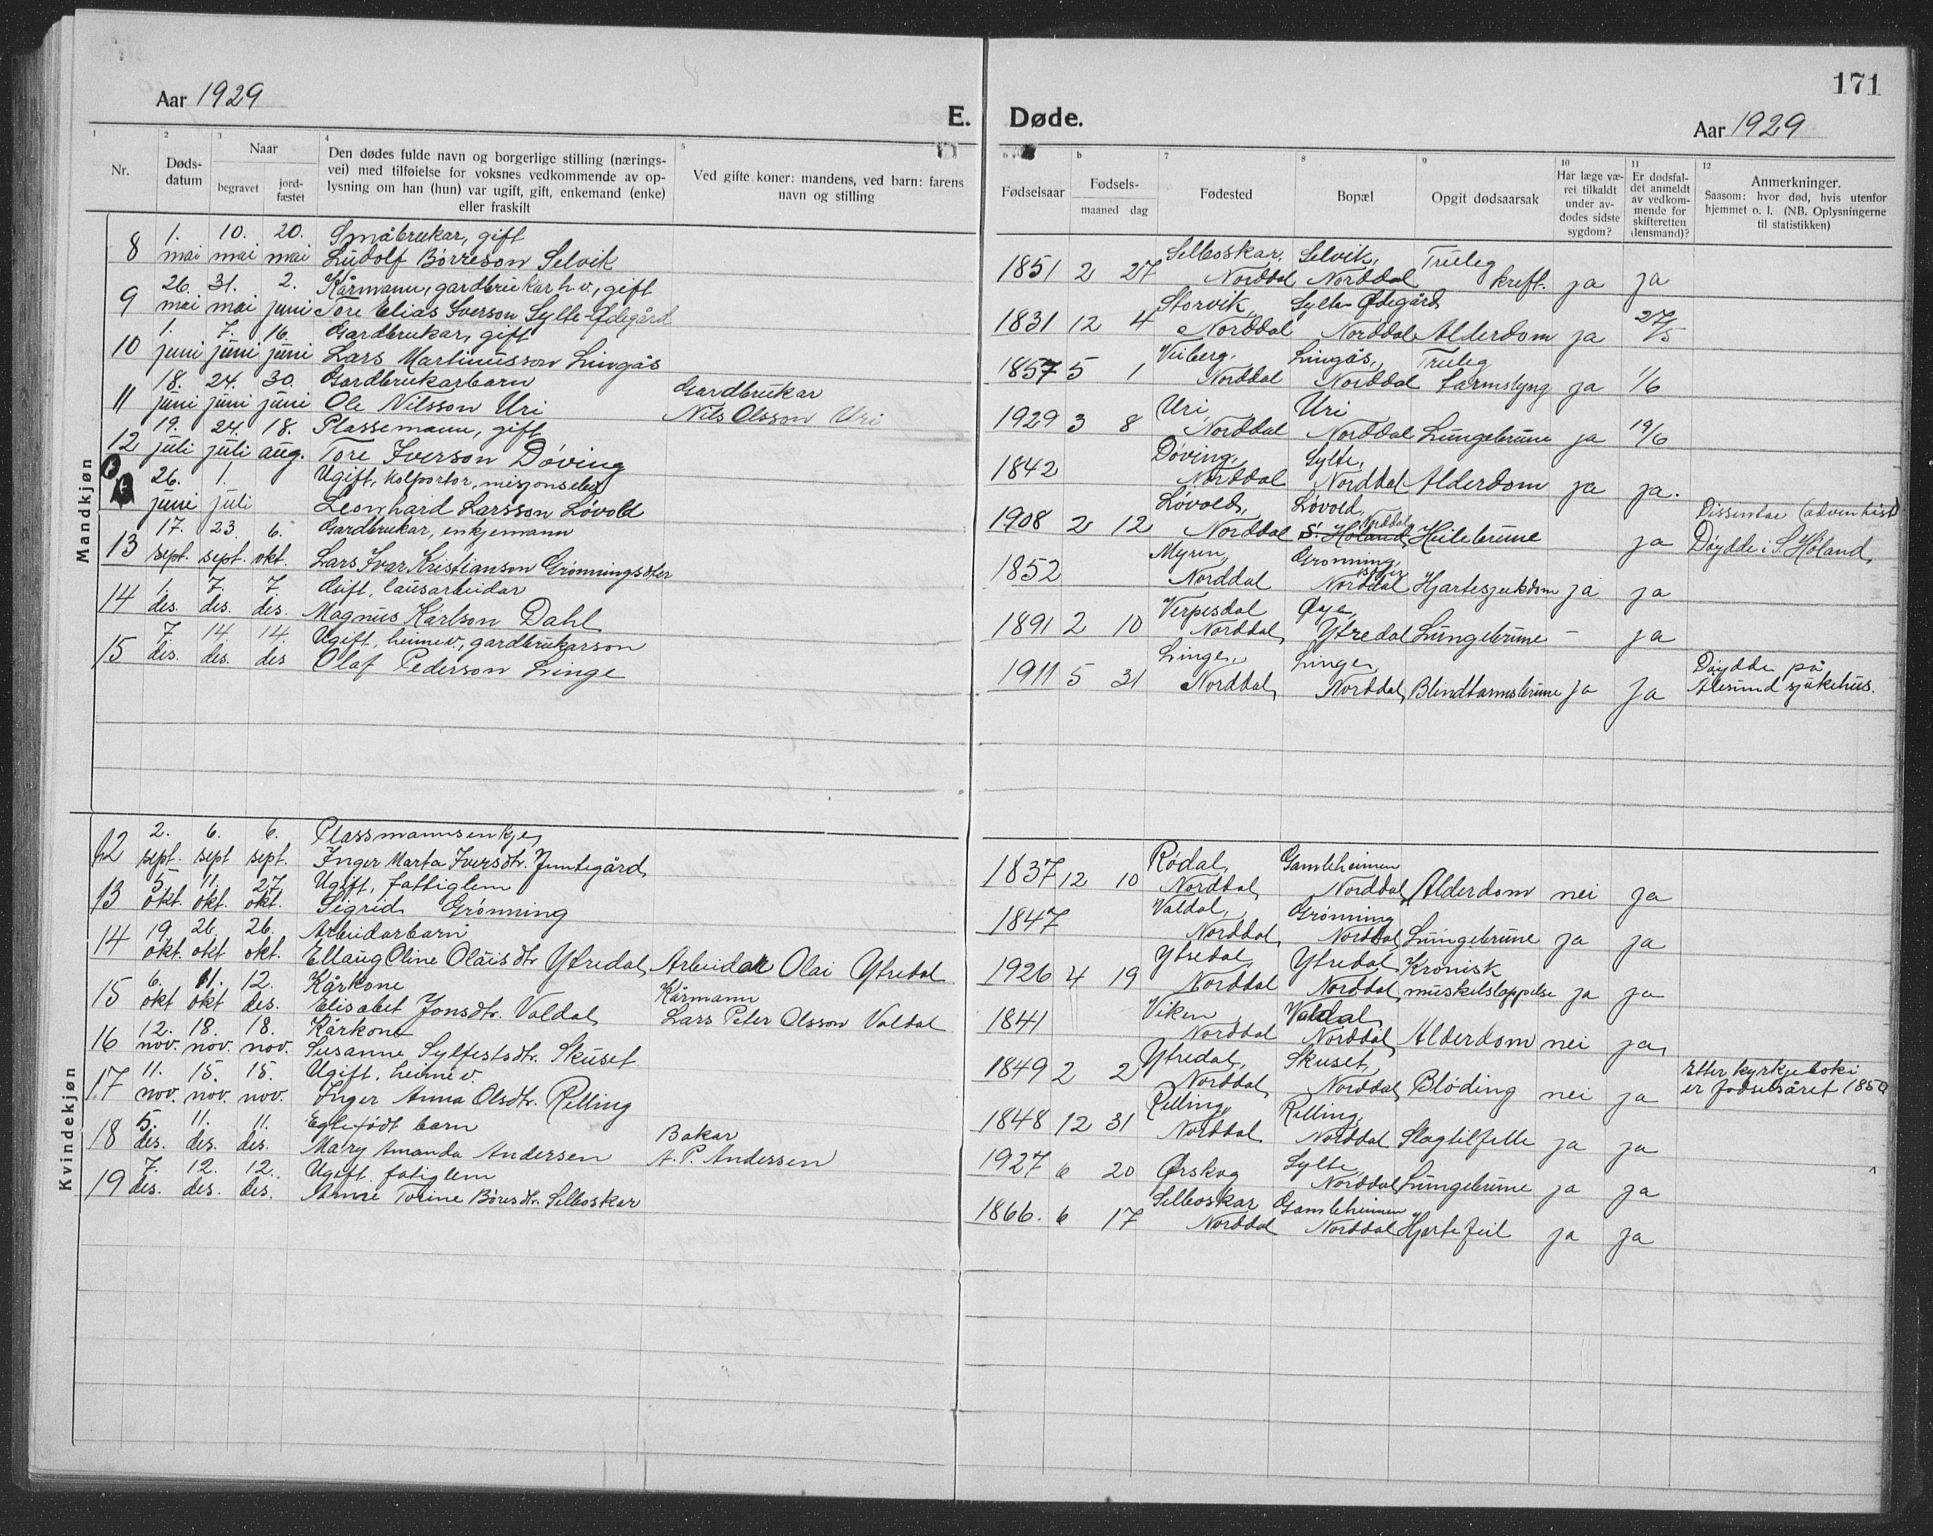 171
Aar 1929
E. Døde.
Aar 1929
1 Nr.
2 Døds-datum
3 Naar
begravet
jord-fæstet
4 Den dødes fulde navn og borgerlige stilling (nærings-
vei) med tilføielse for voksnes vedkommende av op-
lysning om han (hun) var ugift, gift, enkemand (enke)
eller fraskilt
5 Ved gifte koner: mandens, ved barn: farens
navn og stilling
6 Fødselsaar
b Fødsels-
maaned dag
7 Fødested
8 Bopæl
9 Opgit dødsaarsak
10 Har læge væ-
ret tilkaldt
under av-
dødes sidste
sygdom?
11 Er dødsfal-
det anmeldt
av vedkom-
mende for
skifteretten
(lensmand)?
12 Anmerkninger.
Saasom: hvor død, hvis utenfor
hjemmet o. l. (NB. Oplysningerne
til statistikken)
Mandkjøn
1. 10. 20. Småbrukar, gift Selboskar, Selvik, Truleg
8 mai mai mai Ludolf Børreson Selvik 1851 2 27 Norddal Norddal kreft. ja ja
26. 31. 2. Kårmann, gardbrukar h.v., gift Storvik, Sylte-Ødegård
9 mai mai juni Tore Elias Iverson Sylte-Ødegård 1831 12 4 Norddal Norddal Alderdom ja 27/5
1. 7. 16. Gardbrukar, gift Veiberg, Lingås, Truleg
10 juni juni juni Lars Martinusson Lingås 1857 5 1 Norddal Norddal tarmslyng ja 1/6
18. 24. 30. Gardbrukarbarn Gardbrukar Uri, Uri
11 juni juni juni Ole Nilsson Uri Nils Olsson Uri 1929 3 8 Norddal Norddal Lungebrune ja 19/6
19. 24. 18. Plassemann, gift Døving, Sylte,
12 juli juli aug. Tore Iverson Døving 1842 Norddal Norddal Alderdom ja ja.
26. 1. Ugift, kolportør, misjonselev Løvold, Løvold, Norddal Dissentar (adventist)
juni juli Leonhard Larsson Løvold 1908 2 12 Norddal S. Høland Heilebrune ja Døydde i S. Høland
17. 23. 6. Gardbrukar, enkjemann Myren, Grønning
13 sept. sept. okt. Lars Ivar Kristianson Grønningsæter 1852 Norddal sæter Norddal Hjartesjukdom ja ja
1. 7. 7. Gift, lausarbeidar Verpesdal Øye,
14 des. des. des. Magnus Karlson Dahl 1891 2 10 Norddal Ytredal Lungebrune - ja
7. 14. 14. Ugift, heimev., gardbrukarson Linge, Linge, Døydde på
15 des. des. des Olaf Pederson Linge 1911 5 31 Norddal Norddal Blindtarmsbrune ja ja Ålesund sjukehus.
Kvindekjøn
2. 6. 6. Plassmannsenkje, Rødal, Gamleheimen
12 sept. sept sept. Inger Marta Iversdtr. Jimtegård 1837 12 10 Norddal Norddal Alderdom nei ja
5. 11. 27. Ugift, fattiglem Valdal, Grønning
13 okt. okt. okt. Sigrid Grønning 1847 Norddal Norddal Lungebrune ja ja
19. 26. 26. Arbeidarbarn Ytredal, Ytredal Kronisk
14 okt. okt okt. Ellaug Oline Olaisdtr Ytredal Arbeidar Olai Ytredal 1926 4 19 Norddal Norddal muskelslappelse ja ja
6. 11. 12. Kårkone Kårmann Viken, Valdal,
15 okt okt des. Elisabet Jonsdtr. Valdal Lars Peter Olsson Valdal 1841 Norddal Norddal Alderdom nei ja
12. 18. 18. Kårkone Ytredal, Skuset, Etter kyrkjeboki
16 nov. nov. nov. Susanne Sylfestsdtr. Skuset 1849 2 2 Norddal Norddal Bløding nei ja er fødselsåret 1850
11. 15. 15. Ugift, heimev. Relling, Relling,
17 nov. nov. nov. Inger Anna Olsdtr. Relling 1848 12 31 Norddal Norddal Slagtilfelle ja ja
5. 11. 11. Egtefødt barn Bakar Sylte,
18 des. des. des. Mary Amanda Andersen A. P. Andersen 1927 6 20 Ørskog Norddal Lungebrune ja ja
7. 12. 12. Ugift, fatiglem Selboskar Gamleheimen
19 des. des. des. Anne Torine Børesdtr. Selboskar 1866. 6 17 Norddal Norddal Hjartefeil ja ja